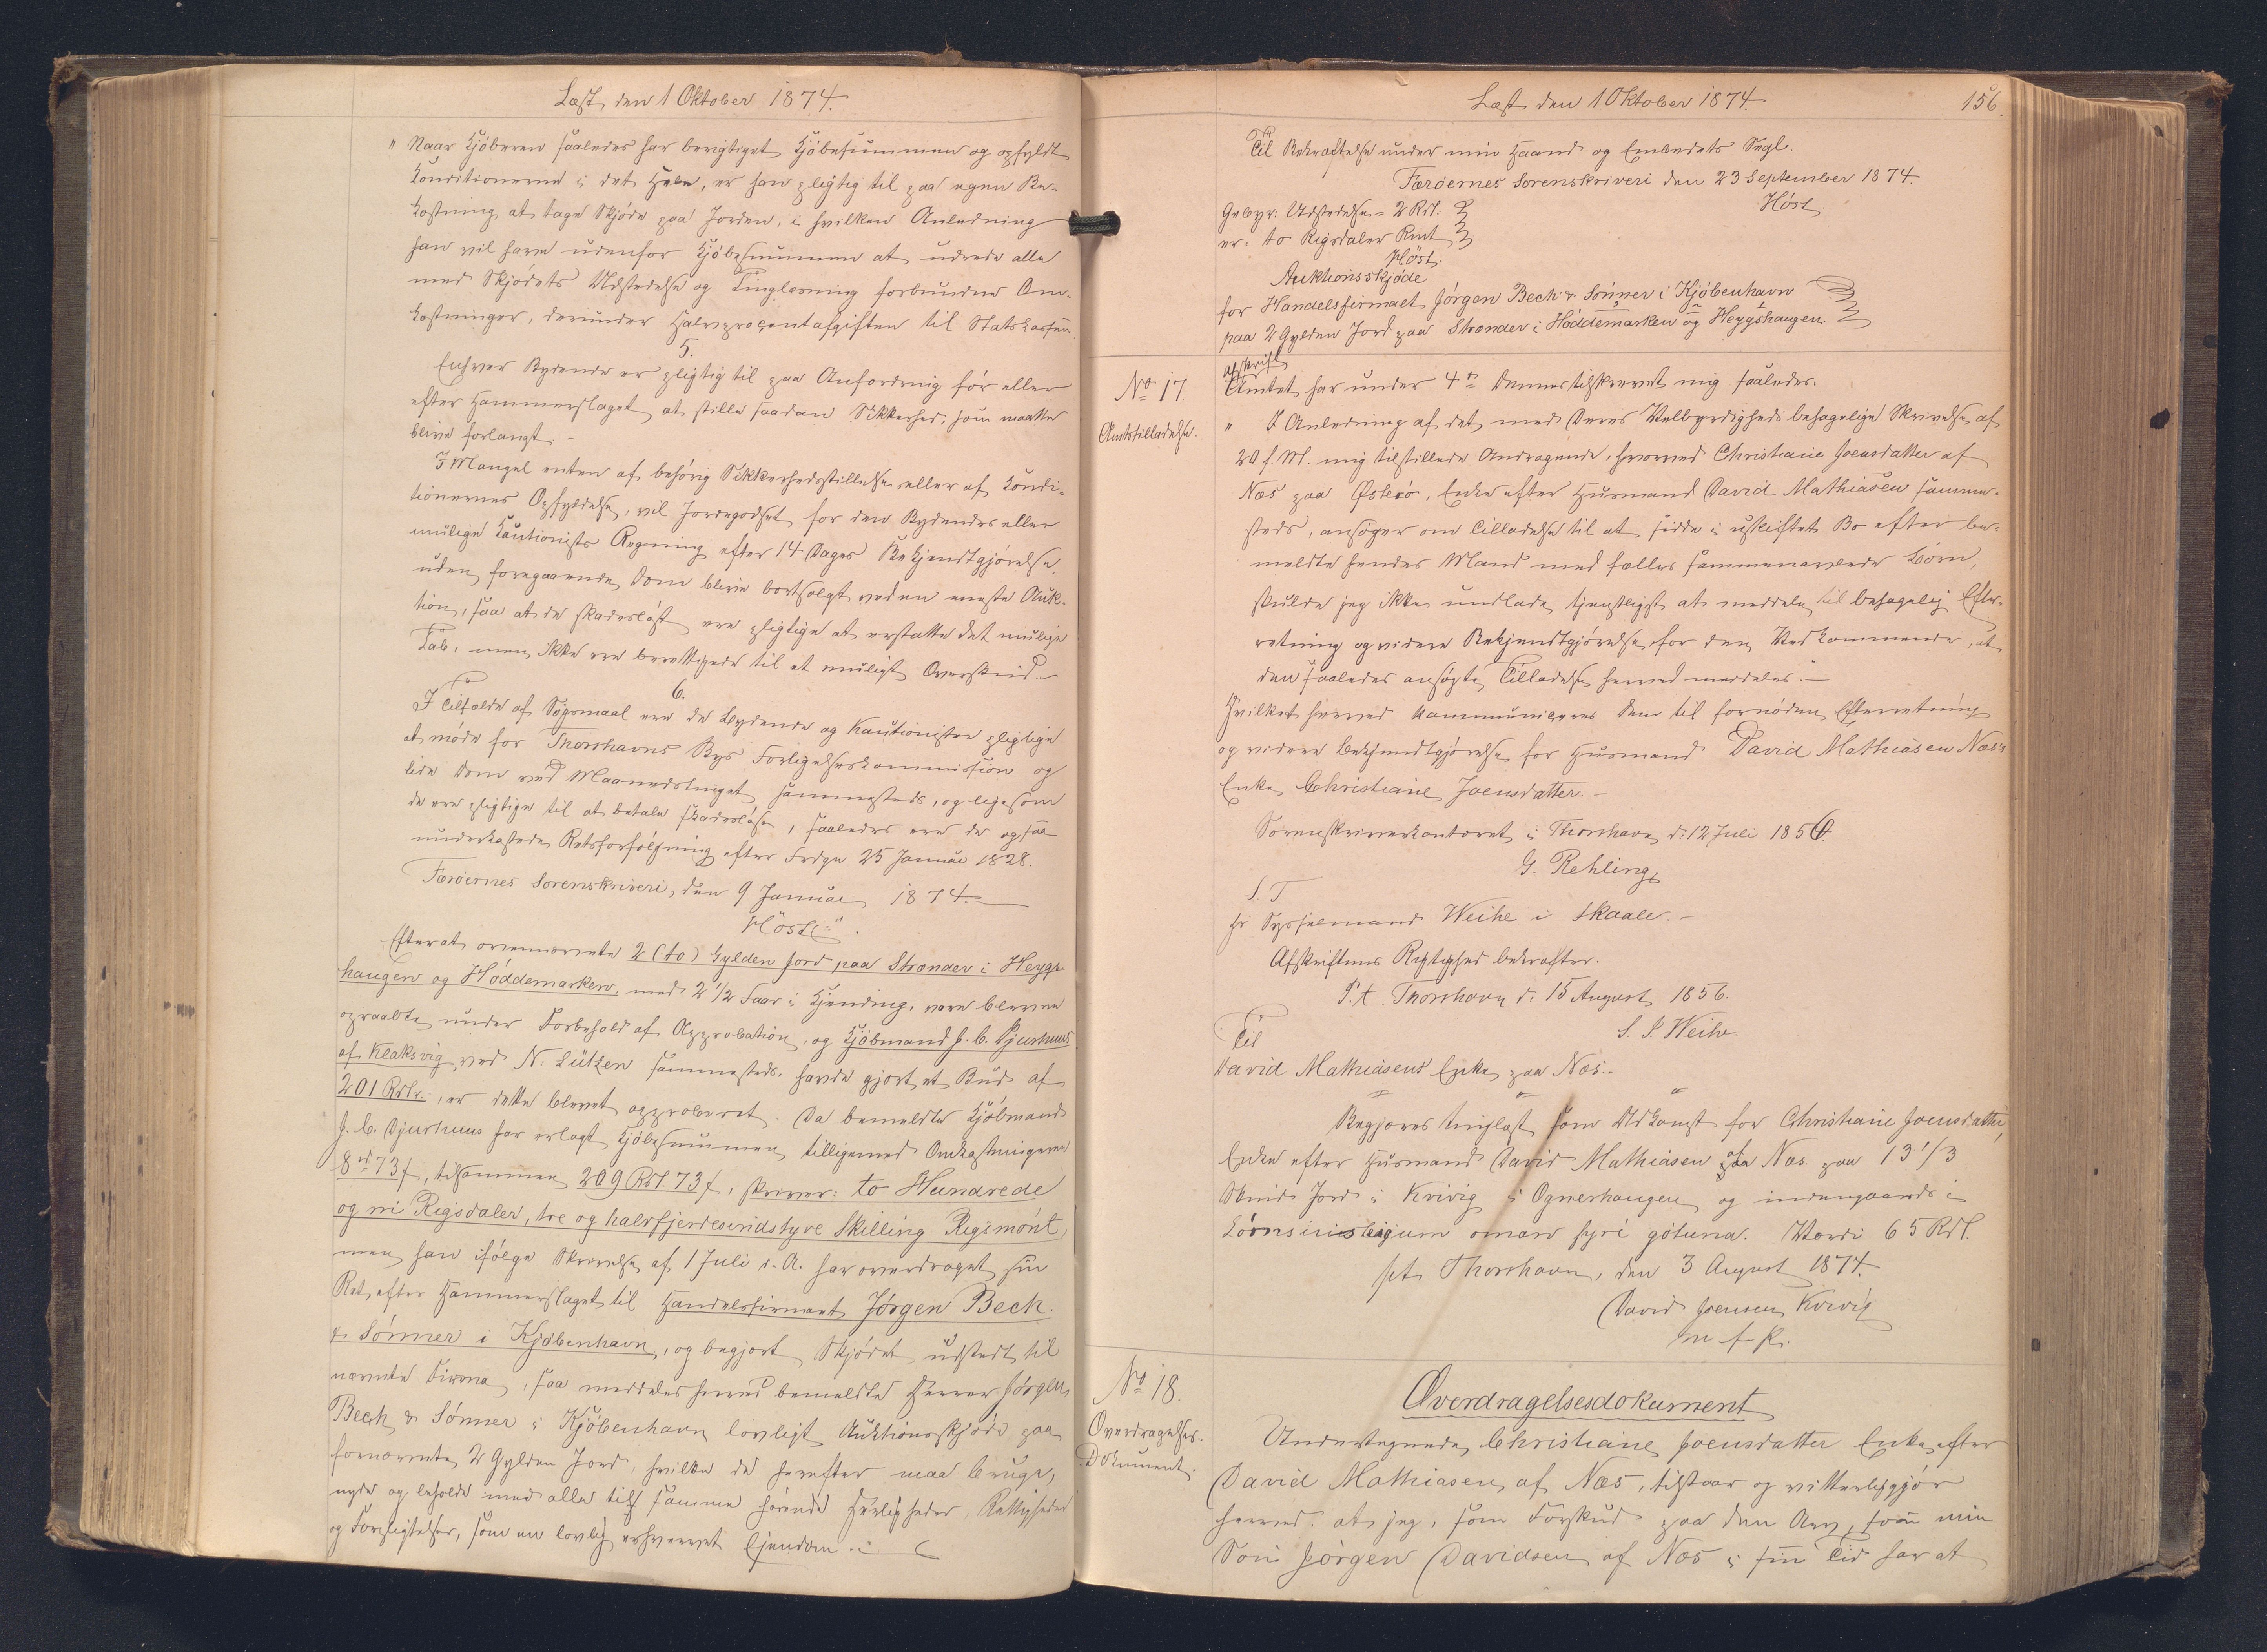 Læst den 1 Oktober 1874.
" Naar Kjöberen saaledes har berigtiget Kjöbesummen og opfyldt
Konditionerne i det Hele, er han pligtig til paa egen Be-
kostning at tage Skjöde paa Jorden, i hvilken Anledning
han vil have udenfor Kjöbesummen at udrede alle
med Skjödets Udstedelse og Tinglæsning forbundne Om-
kostninger, derunder Halvprocentafgiften til Statskassen.
5.
Enhver Bydende er pligtig til paa Anfordring för eller
efter Hammerslaget at stille saadan Sikkerhed, som maatte
blive forlangt. -
I Mangel enten af behörig Sikkerhedsstillelse eller af Kondi-
tionernes Opfyldelse, vil Jordegodset for den Bydendes eller
mulige Kautionists Regning efter 14 Dages Bekjendtgjörelse,
uden foregaaende Dom blive bortsolgt ved en eneste Auk-
tion, saa at de skadeslöst ere pligtige at erstatte det mulige
Tab, men ikke ere berettigede til et muligt Overskud. -
6.
I Tilfælde af Sögsmaal ere de Bydende og Kautionister pligtige
at möde for Thorshavns Bys Forligelseskommission og
lide Dom ved Maanedstinget sammesteds, og ligesom
de ere pligtige til at betale skadeslöse, saaledes ere de ogsaa
underkastede Retsforfölgning efter Frdgn 25 Januar 1828.
Færöernes Sorenskriveri, den 9 Januar 1874. -
Höst."
Efterat ovennævnte 2 (to) Gylden Jord paa Strænder i Heygs-
haugen og Höddemarken, med 2 1/2 Faar i Kjending, vare blevne
opraabte under Forbehold af Approbation, og Kjöbmand J. C. Djurhuus
af Klaksvig ved N. Lützen sammesteds, havde gjort et Bud af
201 Rdlr., er dette blevet approberet. Da bemeldte Kjöbmand
J. C. Djurhuus har erlagt Kjöbesummen tilligemed Omkostningerne
8 rd 73 s, tilsammen 209 Rdl. 73 s, skriver: to Hundrede
og ni Rigsdaler, tre og halvfjerdesindstyve Skilling Rigsmönt,
men han ifölge Skrivelse af 1 Juli d. A. har overdraget sin
Ret efter Hammerslaget til Handelsfirmaet Jörgen Beck
& Sönner i Kjöbenhavn, og begjært Skjödet udstedt til
nævnte Firma, saa meddeles herved bemeldte Herrer Jörgen
Beck & Sönner i Kjöbenhavn lovligt Auktionsskjöde paa
fornævnte 2 Gylden Jord, hvilke de herefter maa bruge,
nyde og beholde med alle til samme hörende Herligheder, Rettigheder
og Forpligtelser, som en lovlig erhvervet Ejendom. -
Læst den 1 Oktober 1874.
156
Til Bekræftelse under min Haand og Embedets Segl.
Færöernes Sorenskriveri den 23 September 1874.
Höst.
Gebyr. Udstedelse = 2 Rdl.
er: to Rigsdaler Rmt
Höst.
Auktionsskjöde
for Handelsfirmaet Jörgen Bech & Sönner i Kjöbenhavn
paa 2 Gylden Jord paa Strænder i Höddemarken og Heygshaugen.
No 17.
Amtstilladelse.
Afskrift
Amtet har under 4de dennes tilskrevet mig saaledes.
" I Anledning af det med Deres Velbyrdigheds behagelige Skrivelse af
20 f. M. mig tilstillede Andragende, hvorved Christiane Joensdatter af
Næs paa Österö, Enke efter Husmand David Mathiasen samme-
steds, ansöger om Tilladelse til at sidde i uskiftet Bo efter be-
meldte hendes Mand med fælles sammenavlede Börn,
skulde jeg ikke undlade tjenstligst at meddele til behagelig Efter-
retning og videre Bekjendtgjörelse for den Vedkommende, at
den saaledes ansögte Tilladelse herved meddeles. -
Hvilket herved kommuniceres Dem til fornöden Efterretning
og videre bekjendtgjörelse for Husmand David Mathiasen Næs's
Enke Christiane Joensdatter. -
Sorenskriverkontoret i Thorshavn d: 12 Juli 1856.
G. Rehling
S. T
Hr Sysselmand Weihe i Skaale. -
Afskriftens Rigtighed bekræfter.
P.t. Thorshavn d: 15 August 1856.
S. J. Weihe
Til
David Mathiasens Enke paa Næs. -
Begjæres tinglæst som Adkomst for Christiane Joensdatter,
Enke efter Husmand David Mathiasen af Næs paa 13 1/3
Skind Jord i Kvivig i Ognerhaugen og indengaards i
Lörnsinsteigum oman fyri götuna. Værdi 65 Rdl.
pt. Thorshavn, den 3 August 1874.
David Joensen Kvivig
m f P.
No 18.
Overdragelses-
Dokument.
Overdragelsesdokument
Undertegnede Christiane Joensdatter Enke efter
David Mathiasen af Næs, tilstaar og vitterliggjör
herved: at jeg, som Forskud paa den Arv, som min
Sön Jörgen Davidsen af Næs i sin Tid har at